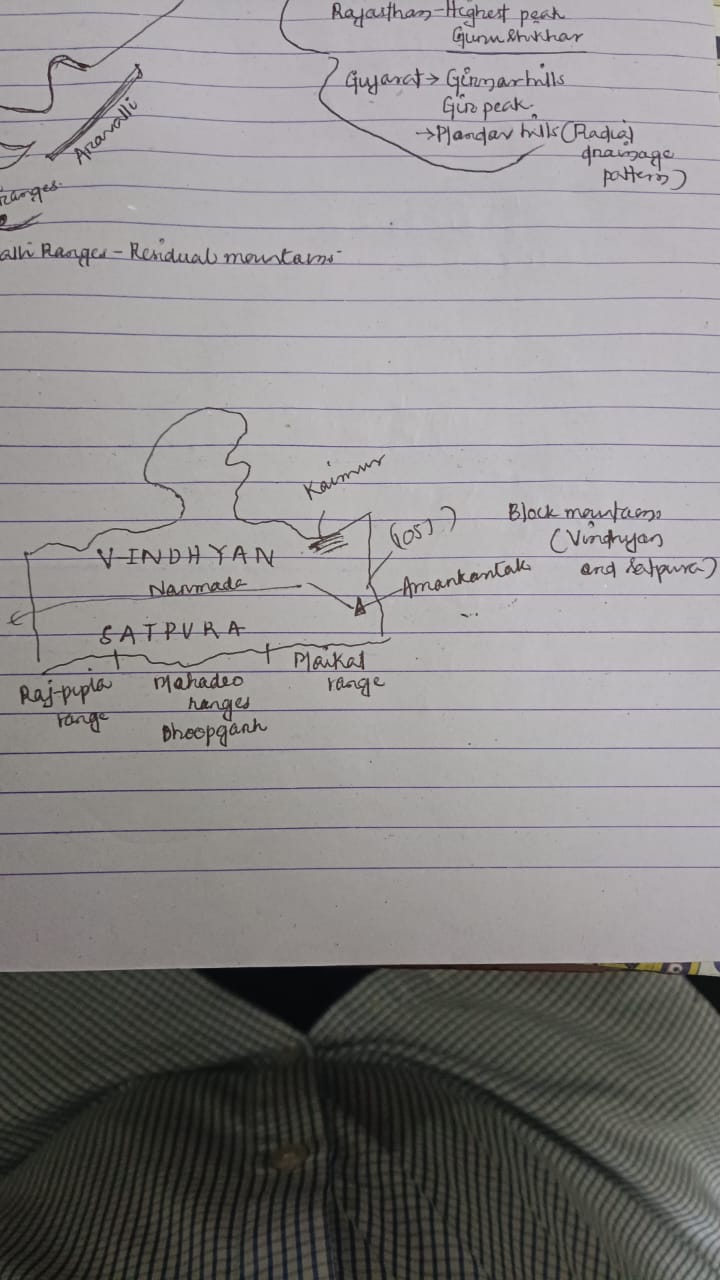 Rajasthan-Highest peak
Guru Shikhar
Gujarat → Girnar hills
Gir peak
→ Mandav hills (Radial
drainage
pattern)
Aravalli
ranges.
alli Ranges - Residual mountains
Kaimur
(OSJ)
Block mountains
(Vindhyan
and Satpura)
VINDHYAN
Narmada
Amarkantak
SATPURA
Raj-pipla
range
Mahadeo
ranges
Dhoopgarh
Maikal
range